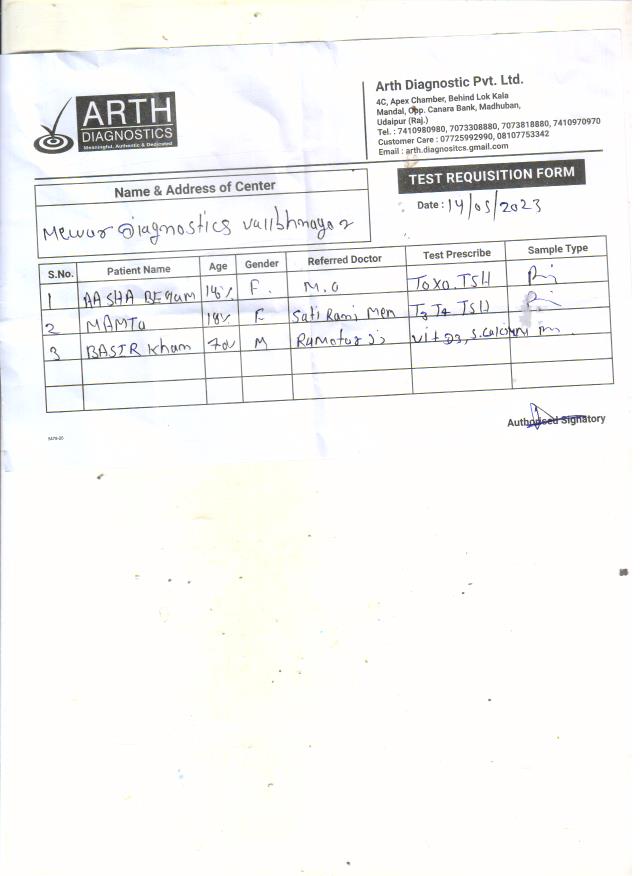 ARTH
DIAGNOSTICS
Meaningful, Authentic & Dedicated
Arth Diagnostic Pvt. Ltd.
4C, Apex Chamber, Behind Lok Kala
Mandal, Opp. Canara Bank, Madhuban,
Udaipur (Raj.)
Tel. : 7410980980, 7073308880, 7073818880, 7410970970
Customer Care : 07725992990, 08107753342
Email : arth.diagnositcs.gmail.com
Name & Address of Center
TEST REQUISITION FORM
Date : 14/05/2023
Mewar Diagnostics
S.No. Patient Name Age Gender Referred Doctor Test Prescribe Sample Type
1 AASHA BEGUM F. M.O TOXO. TSH
2 MAMTA F T3 T4 TSH
3 BASIR Kham M Vit D3, S.calcium
Authorised Signatory